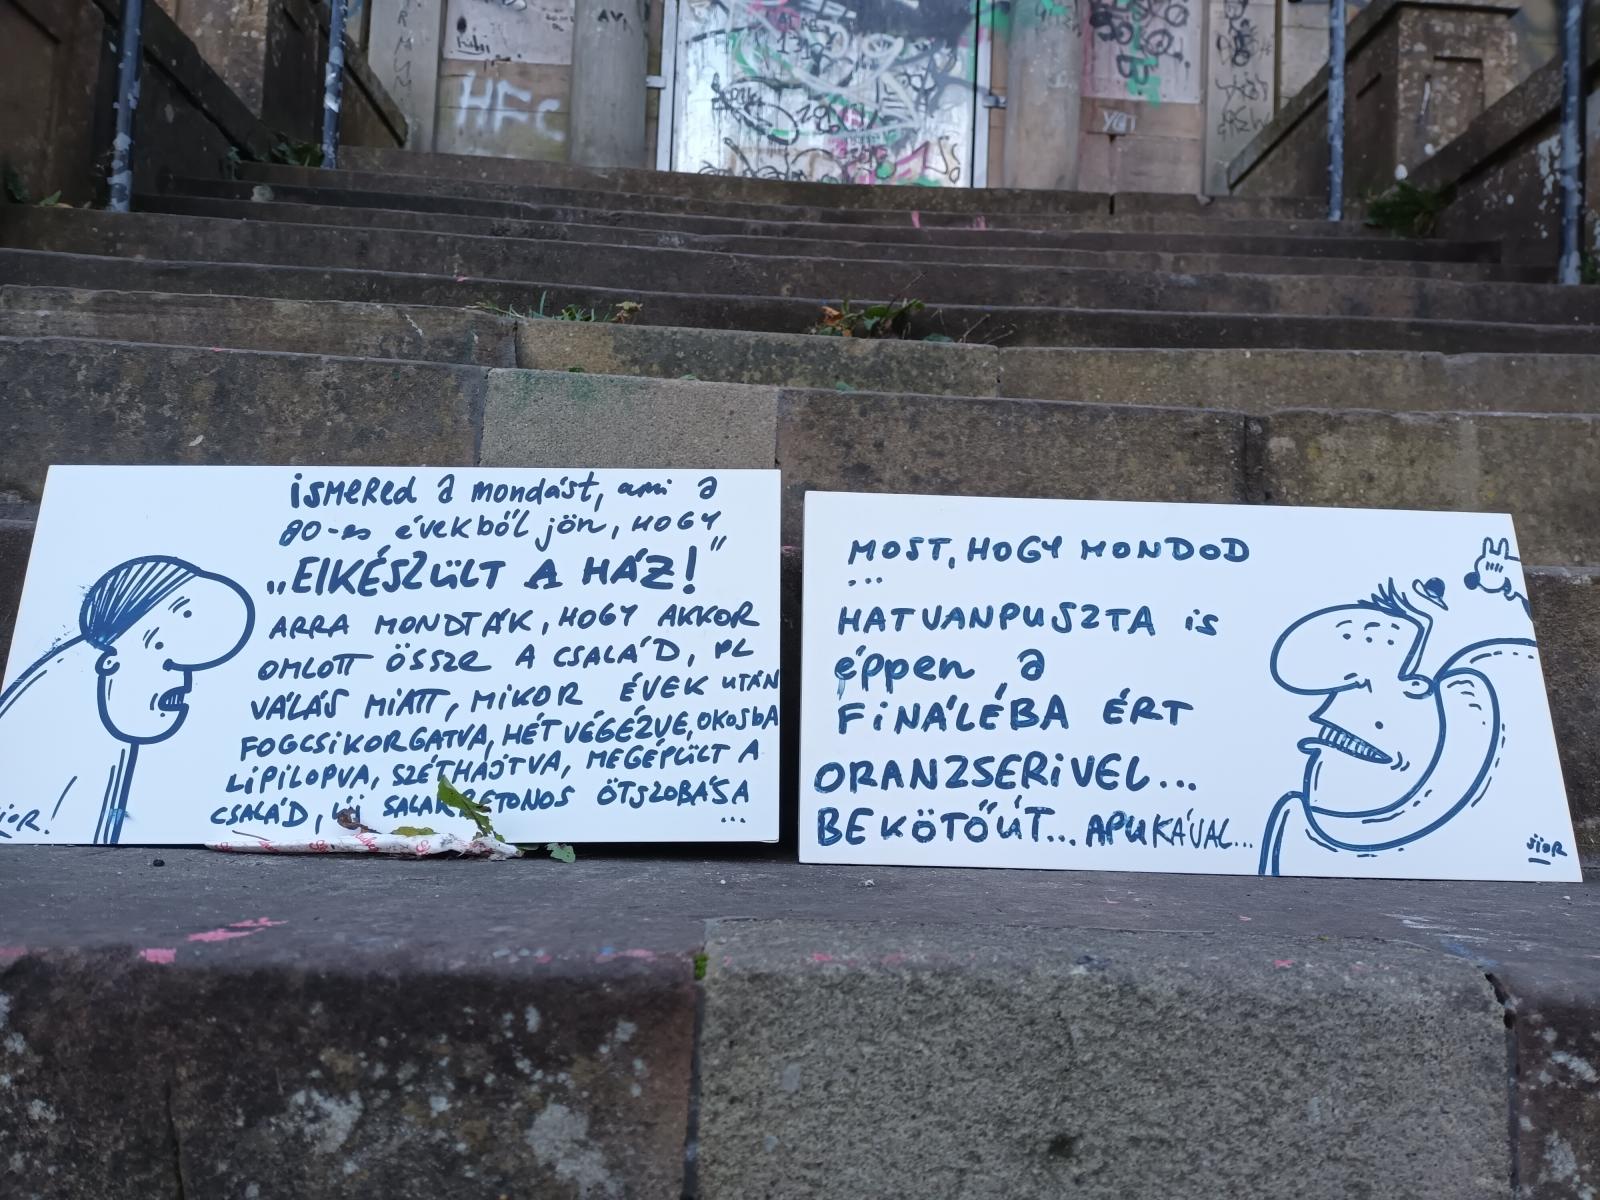 HFC
YGT
ismered a mondást, ami a
80-es évekből jön, HOGY
„ElKÉSZÜLT A HÁZ!”
ARRA MONDTÁK, HOGY AKKOR
OMLOTT ÖSSZE A CSALÁD, PL
VÁLÁS MIATT, MIKOR ÉVEK UTÁN
FOGCSIKORGATVA, HÉTVÉGÉZVE, OKOSBA
LIPILOPVA, SZÉTHAJTVA, MEGÉPÜLT A
CSALÁD, ÚJ SALAKBETONOS ÖTSZOBÁSA
...
MOST, HOGY MONDOD
...
HATVANPUSZTA is
éppen a
FiNÁLÉBA ÉRT
ORANZSERiVEL...
BEKÖTŐÚT... APUKÁVAL...
SiOR